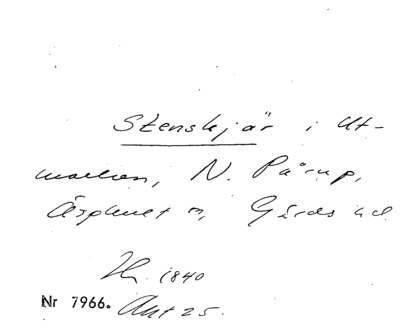 Stenskjär i Ut-
marken, N. Pårup,
Äsphult sn, Gärds hd
Hr. 1840
Nr 7966. Akt 25.